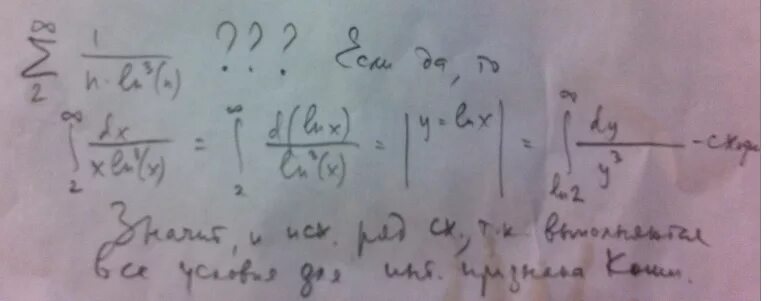 ∞ ∑ 2 1/(n·ln³(n)) ??? Если да, то
∞ ∫ 2 dx/(x ln³(x)) = ∞ ∫ 2 d(ln x)/ln³(x) = |y = ln x| = ∞ ∫ ln 2 dy/y³ -сходи
Значит, и исх. ряд сх., т.к. выполняются
все условия для инт. признака Коши.